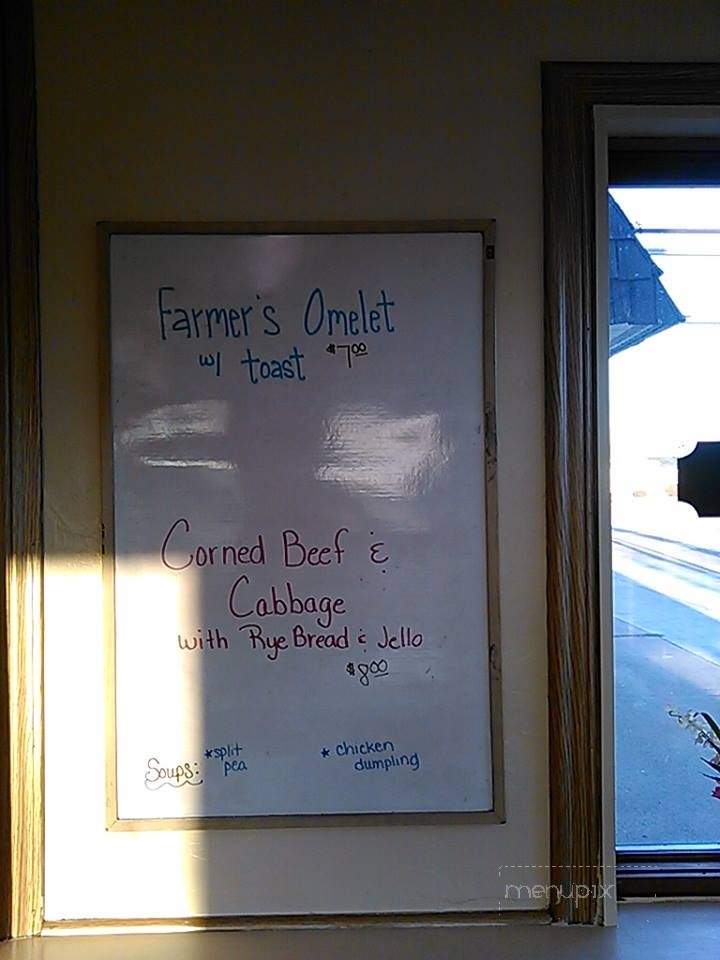 Farmer's Omelet
w/ toast $7.00
Corned Beef &
Cabbage
with Rye Bread & Jello
$8.00
Soups: *split pea
* chicken dumpling
menupix